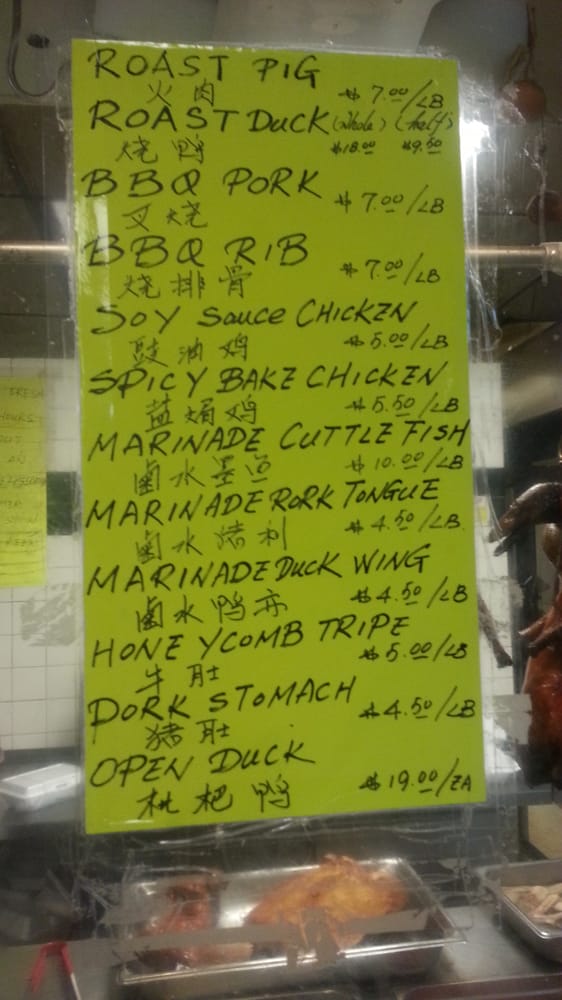 ROAST PIG
火肉 $7.00/LB
ROAST DUCK (whole) (half)
烧鸭 $18.00 $9.50
BBQ PORK
叉烧 $7.00/LB
BBQ RIB
烧排骨 $7.00/LB
SOY SAUCE CHICKEN
豉油鸡 $5.00/LB
SPICY BAKE CHICKEN
盐焗鸡 $5.50/LB
MARINADE CUTTLE FISH
卤水墨鱼 $10.00/LB
MARINADE PORK TONGUE
卤水猪利 $4.50/LB
MARINADE DUCK WING
卤水鸭亦 $4.50/LB
HONEYCOMB TRIPE
牛肚 $5.00/LB
PORK STOMACH
猪肚 $4.50/LB
OPEN DUCK
枇杷鸭 $19.00/EA
FRESH
HOURS